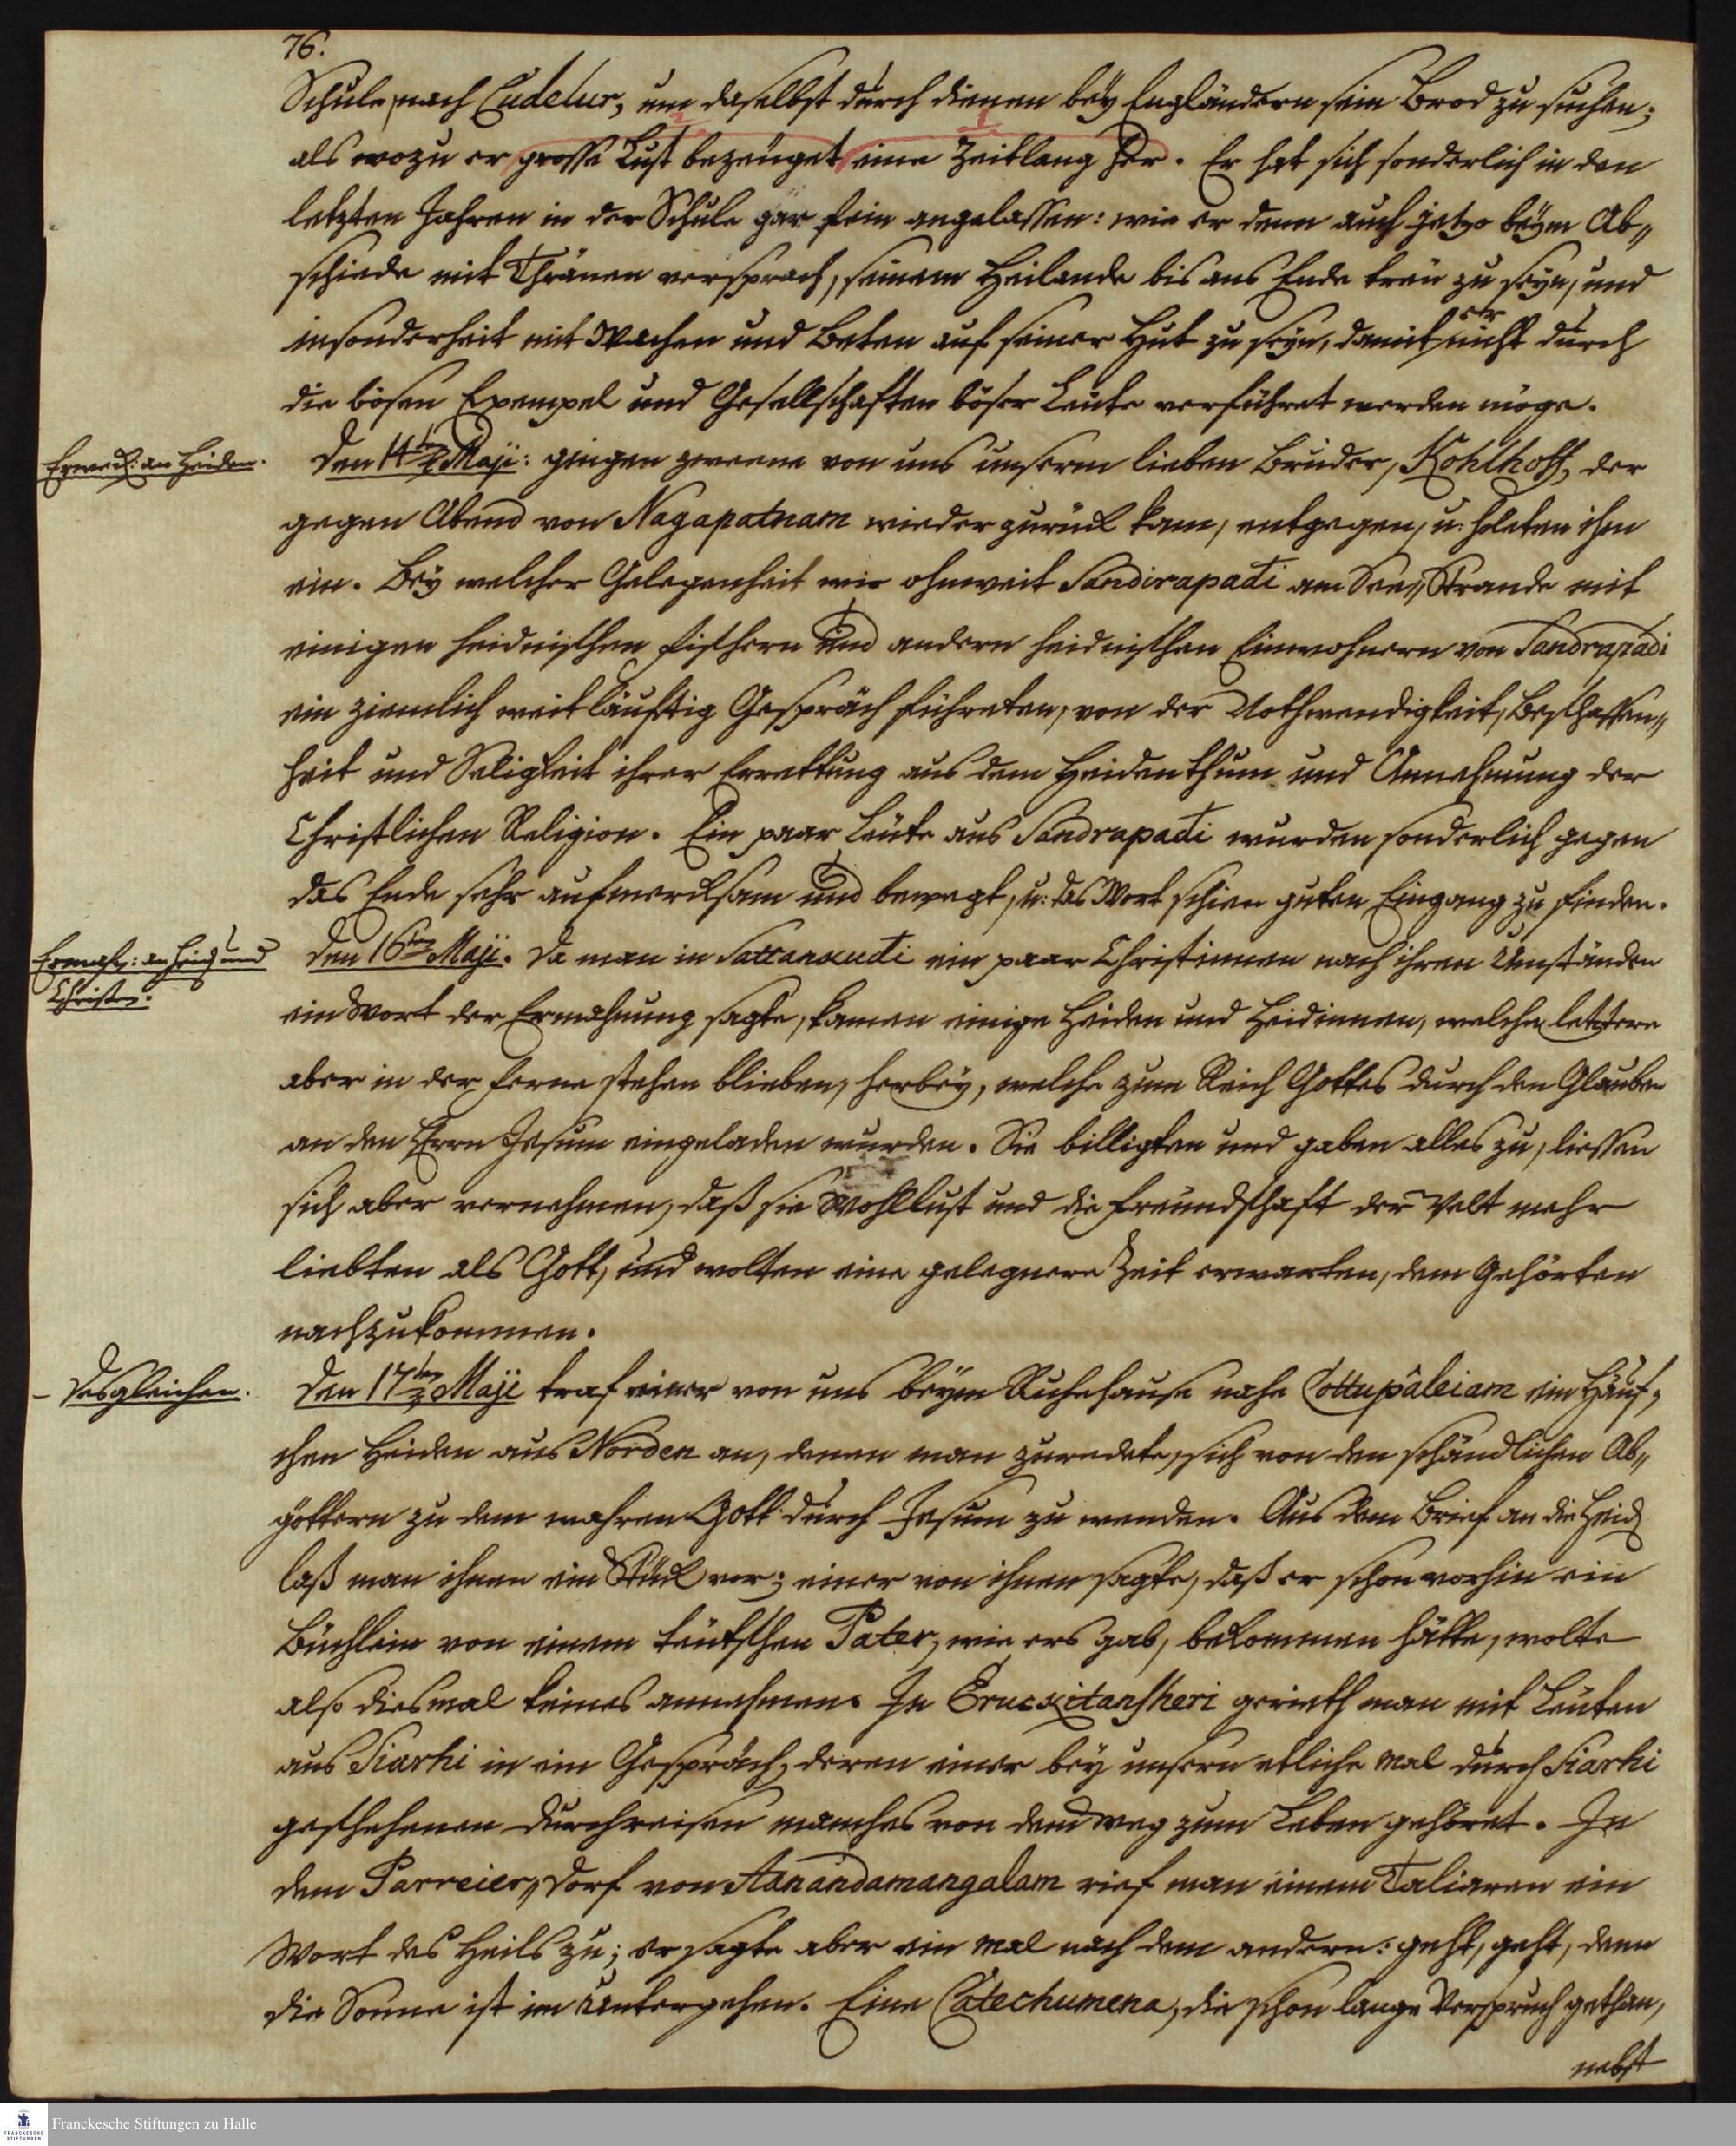 76.
Schule, nach Cudelur, um daselbst durch dienen beÿ Engländern sein Brod zu suchen;
als wozu er grosse Lust bezeüget eine Zeitlang her. Er hat sich sonderlich in den
letzten Jahren in der Schule gar fein angelassen: wie er denn auch jetzo beÿm Ab„
schiede mit Thränen versprach, seinem Heilande bis ans Ende treü zu seÿn, und
insonderheit mit Wachen und Beten auf seiner Hut zu seÿn, damit er nicht durch
die bösen Exempel und Gesellschaften böser Leüte verführet werden möge.
Erweck: an Heiden.
Den 14ten Maji: gingen zweene von uns unserm lieben Bruder, Kohlhoff, der
gegen Abend von Nagapatnam wieder zurück kam, entgegen, u. holeten ihn
ein. Beÿ welcher Gelegenheit wir ohnweit Sandirapadi am See„Strande mit
einigen heidnischen fischern und andern heidnischen Einwohnern von Sandrapadi
ein ziemlich weitläuftig Gespräch führeten, von der Nothwendigkeit, Beschaffen„
heit und Seligkeit ihrer Errettung aus dem Heidenthum und Annehmung der
Christlichen Religion. Ein paar Leüte aus Sandrapadi wurden sonderlich gegen
das Ende sehr aufmercksam und bewegt, u: das Wort schien guten Eingang zu finden.
Ermahn: an Heid und
Christen.
Den 16ten Maji. Da man in Sattanкudi ein paar Christinnen nach ihren Umständen
ein Wort der Ermahnung sagte, kamen einige Heiden und Heidinnen, welche letztere
aber in der ferne stehen blieben, herbeÿ, welche zum Reich Gottes durch den Glauben
an den HErrn Jesum eingeladen wurden. Sie billigten und gaben alles zu, liessen
sich aber vernehmen, daß sie Wohllust und die freündschaft der Welt mehr
liebten als Gott, und wolten eine gelegnere Zeit erwarten, dem Gehörten
nachzukommen.
– Desgleichen.
Den 17ten Maji traf einer von uns beÿm Ruhehause nahe Cottupáleiam ein Häuf„
chen Heiden aus Norden an, denen man zuredete, sich von den schändlichen Ab„
göttern zu dem wahren Gott durch Jesum zu wenden. Aus dem Brief an die Heid
laß man ihnen ein Stück vor; einer von ihnen sagte, daß er schon vorhin ein
Büchlein von einem teütschen Pater, wie ers gab, bekommen hätte, wolte
also diesmal keines annehmen. In Eruckitanscheri gerieth man mit Leüten
aus Siarhi in ein Gespräch, deren einer beÿ unsern etliche mal durch Siarhi
geschehenen durchreisen manches von dem weg zum Leben gehöret. In
dem Parreier„dorf von Anandamangalam rief man einem Taliaren ein
Wort des Heils zu; er sagte aber ein mal nach dem andern: geht, geht, denn
die Sonne ist im Untergehen. Eine Catechumena, die schon lange Verspruch gethan,
nebst
Franckesche Stiftungen zu Halle
FRANCKESCHE
STIFTUNGEN